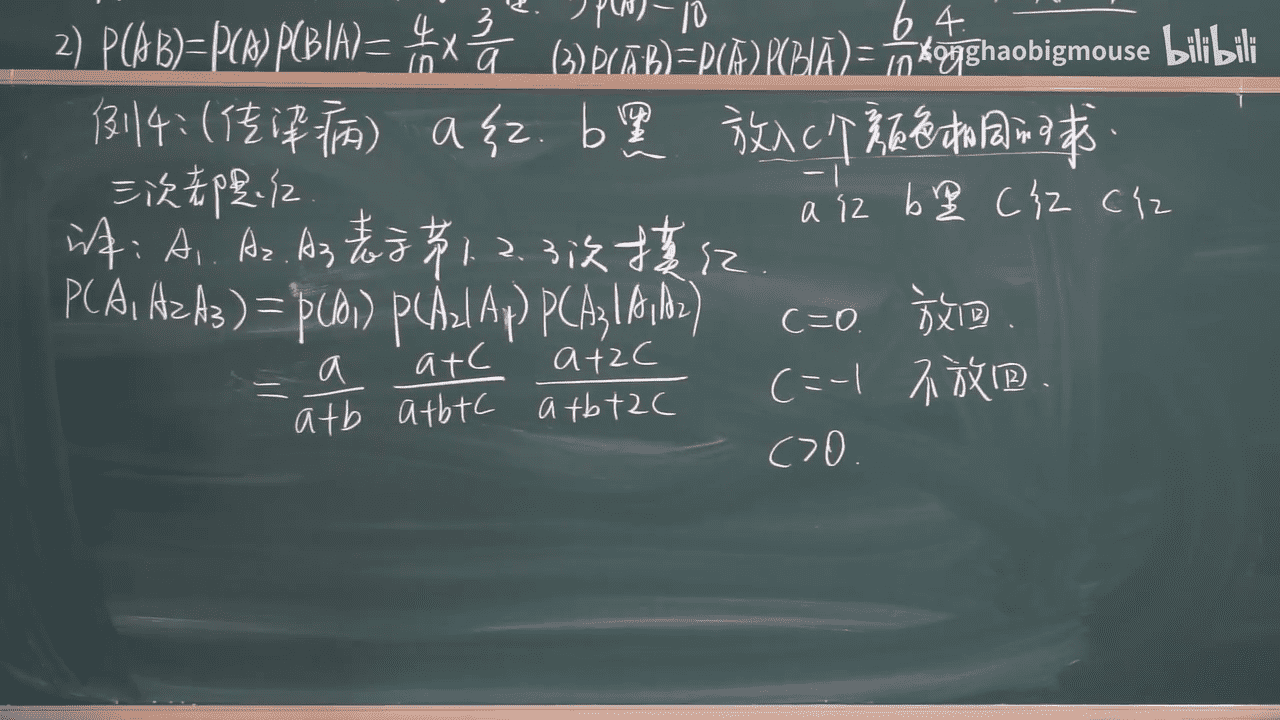 2) P(AB)=P(A)P(B|A)= 4/10 × 3/9 (3) P(ĀB)=P(Ā)P(B|Ā)= 6/10 × 4/9
songhaobigmouse bilibili
例4:(传染病) a红. b黑 放入C个颜色相同的球.
三次都是红.
-1
a红 b黑 C红 C红
解: A₁. A₂. A₃表示第1. 2. 3次摸红.
P(A₁A₂A₃)=P(A₁) P(A₂|A₁) P(A₃|A₁A₂)
C=0. 放回.
= a/(a+b) (a+C)/(a+b+C) (a+2C)/(a+b+2C)
C=-1 不放回.
C>0.